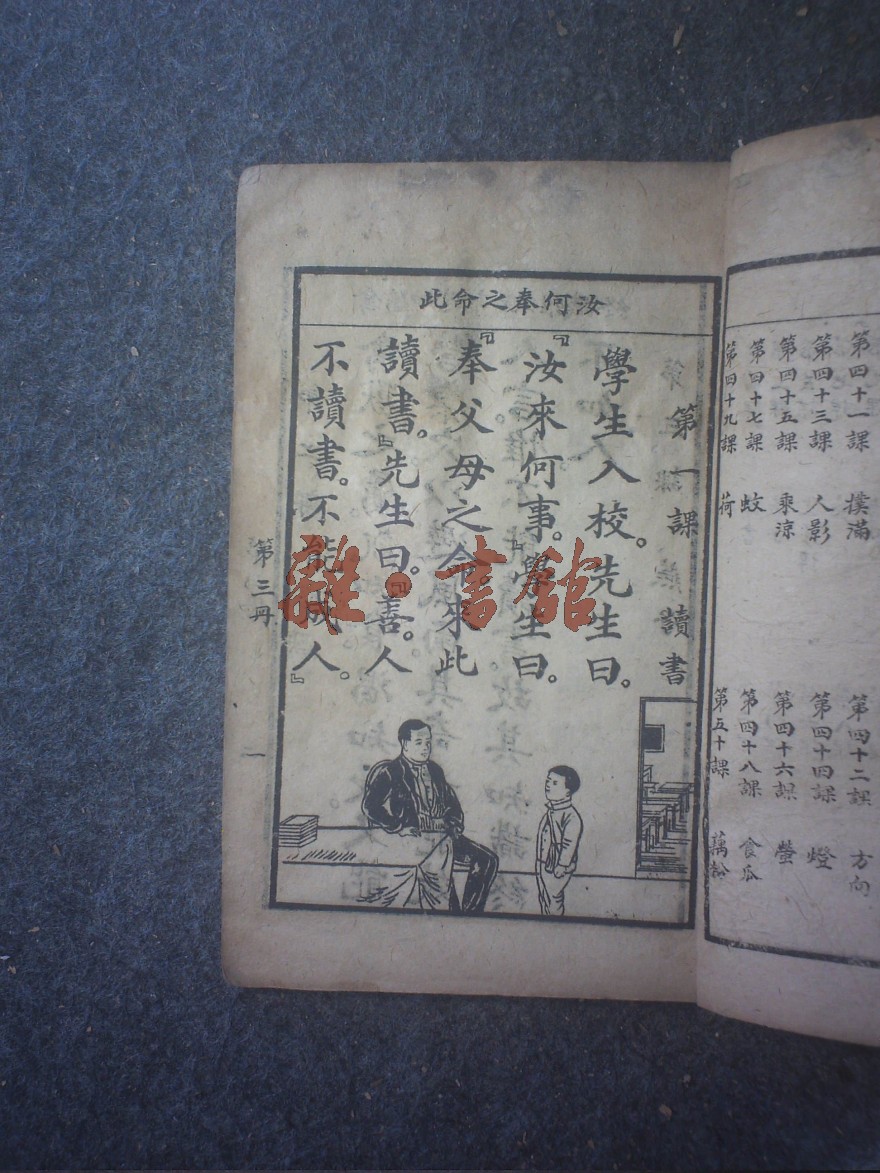 第四十一課 撲滿 第四十二課 方向
第四十三課 人影 第四十四課 燈
第四十五課 乘涼 第四十六課 螢
第四十七課 蚊 第四十八課 食瓜
第四十九課 荷 第五十課
汝何奉之命此
第一課 讀書
學生入校。先生曰。
『汝來何事。』學生曰。
『奉父母之命。來此
讀書。』先生曰。『善。人
不讀書。不能成人。』
第三册 一
雜·書館